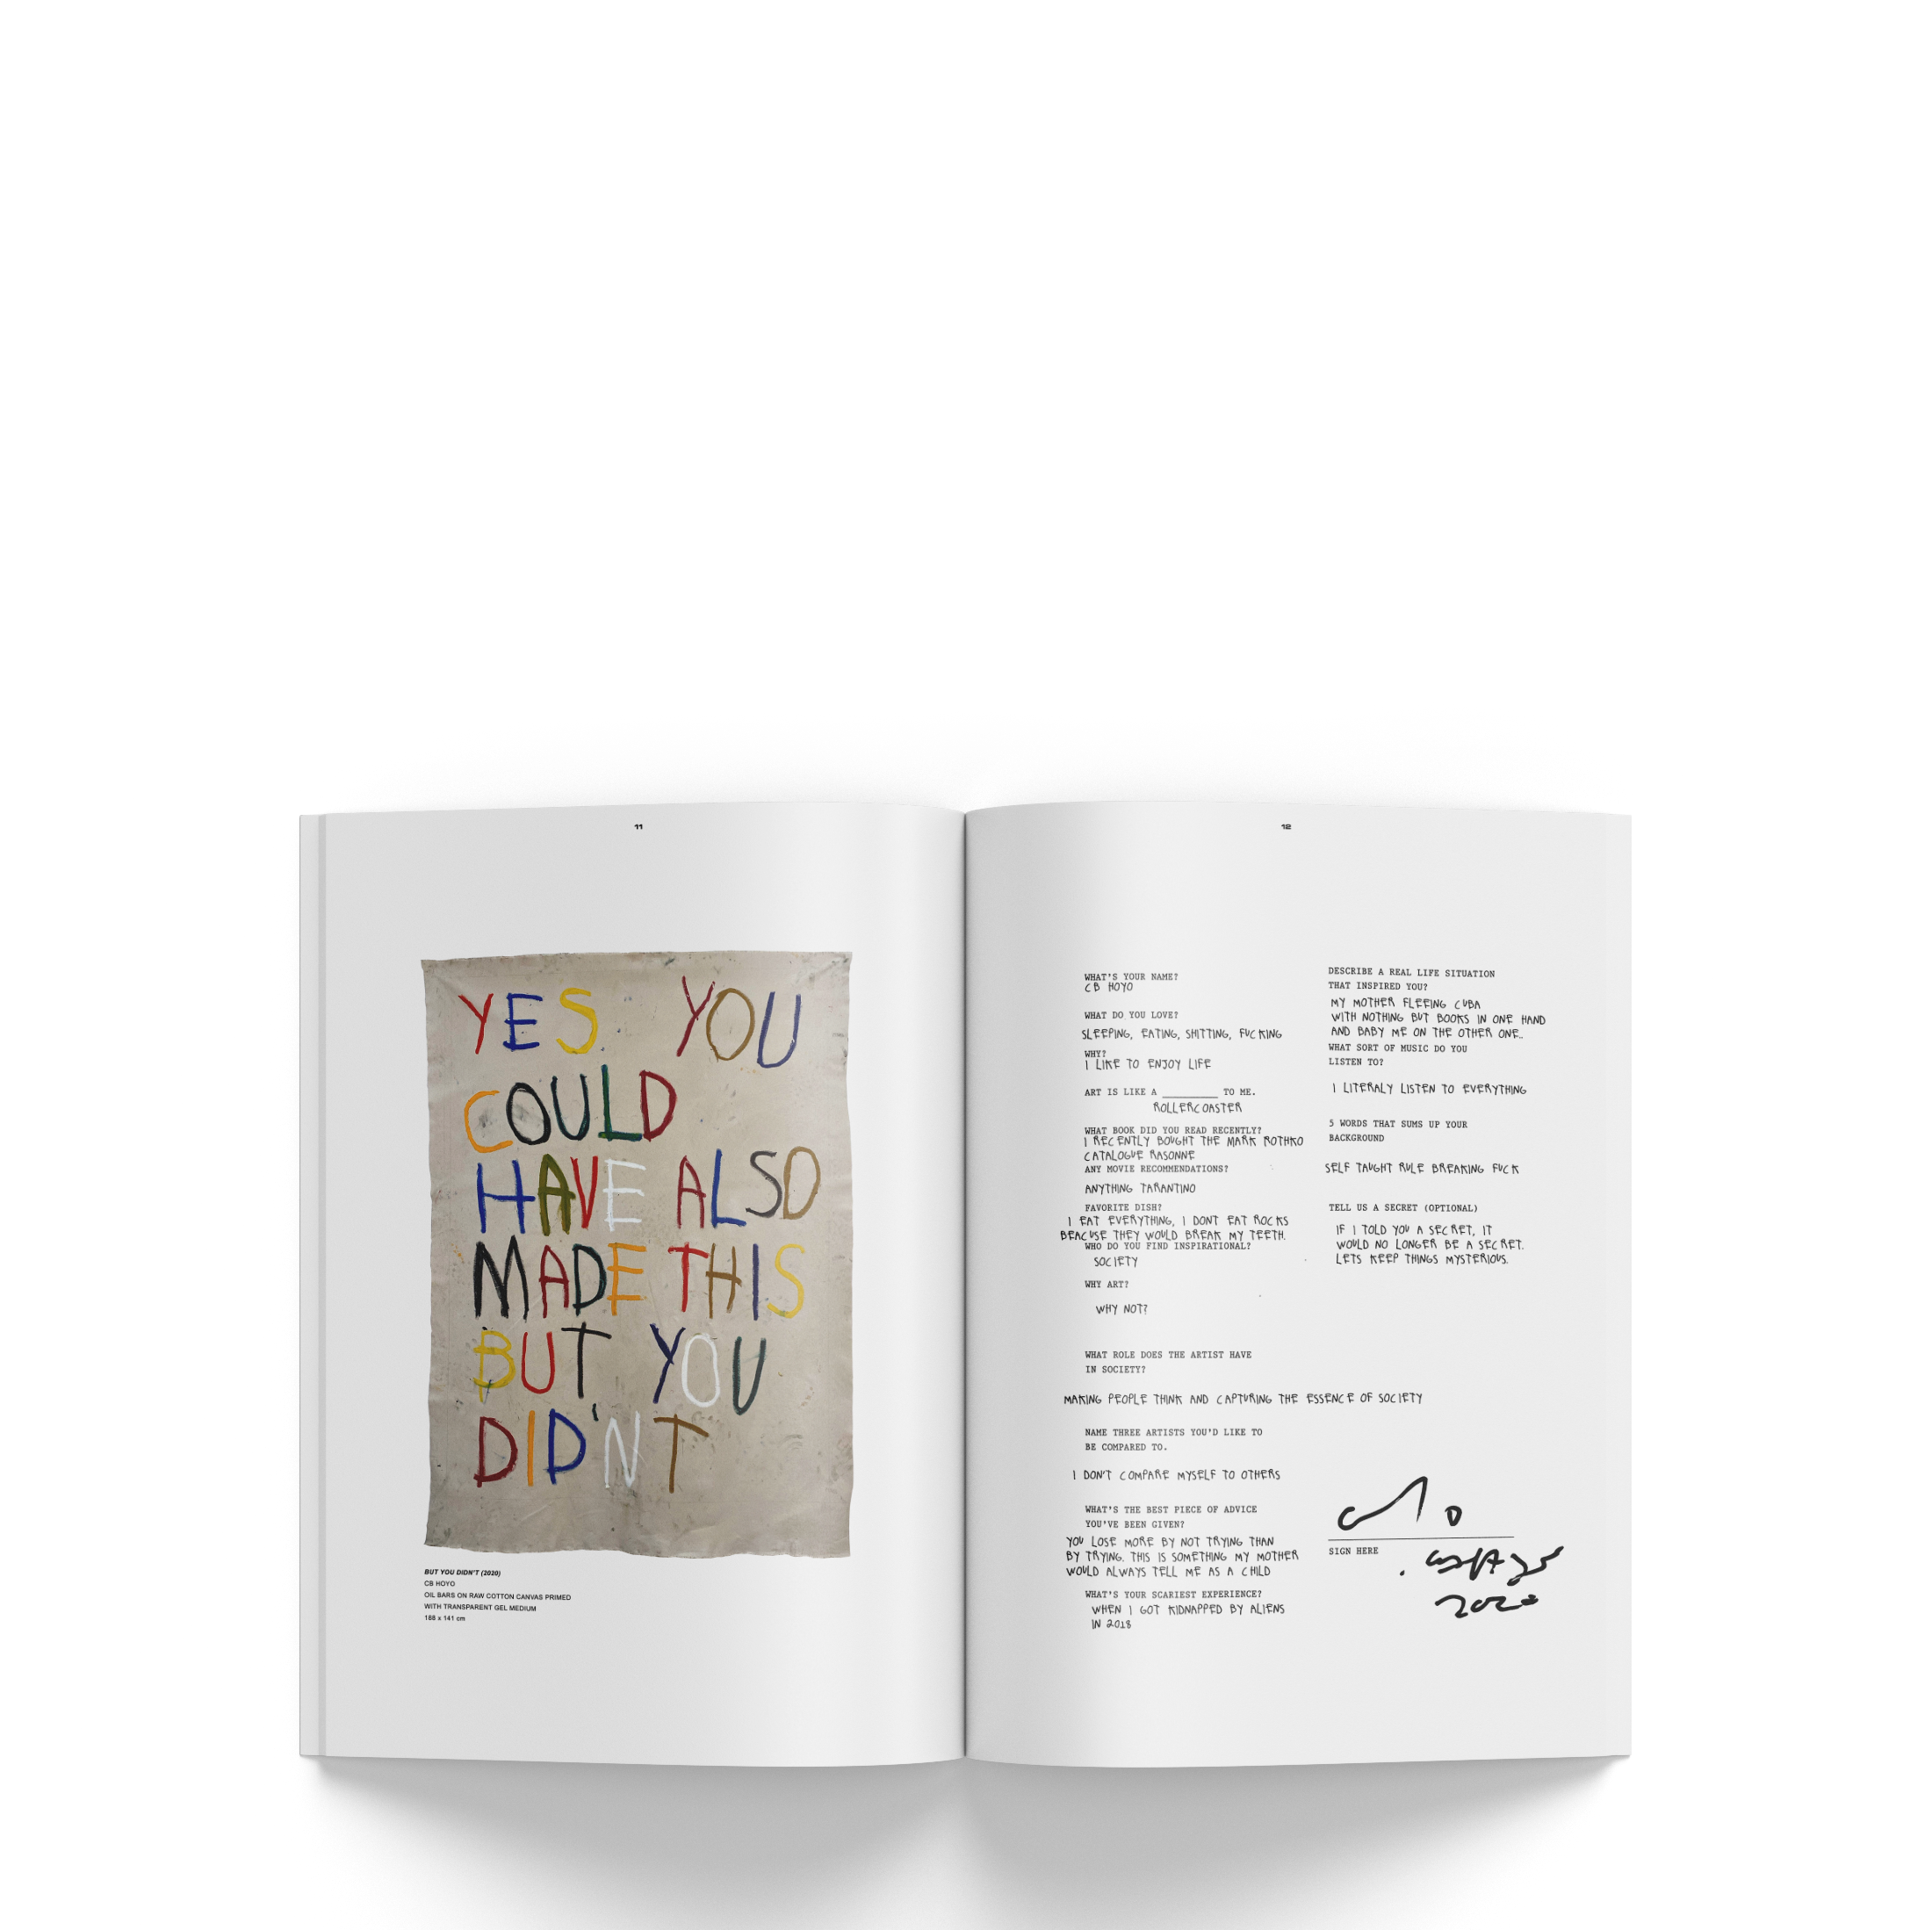 11
YES YOU
COULD
HAVE ALSO
MADE THIS
BUT YOU
DID'NT
BUT YOU DIDN'T (2020)
CB HOYO
OIL BARS ON RAW COTTON CANVAS PRIMED
WITH TRANSPARENT GEL MEDIUM
188 x 141 cm
12
WHAT'S YOUR NAME?
CB HOYO
WHAT DO YOU LOVE?
SLEEPING, EATING, SHITTING, FUCKING
WHY?
I LIKE TO ENJOY LIFE
ART IS LIKE A __________ TO ME.
ROLLERCOASTER
WHAT BOOK DID YOU READ RECENTLY?
I RECENTLY BOUGHT THE MARK ROTHKO
CATALOGUE RASONNE
ANY MOVIE RECOMMENDATIONS?
ANYTHING TARANTINO
FAVORITE DISH?
I EAT EVERYTHING, I DONT EAT ROCKS
BEACUSE THEY WOULD BREAK MY TEETH.
WHO DO YOU FIND INSPIRATIONAL?
SOCIETY
WHY ART?
WHY NOT?
WHAT ROLE DOES THE ARTIST HAVE
IN SOCIETY?
MAKING PEOPLE THINK AND CAPTURING THE ESSENCE OF SOCIETY
NAME THREE ARTISTS YOU'D LIKE TO
BE COMPARED TO.
I DON'T COMPARE MYSELF TO OTHERS
WHAT'S THE BEST PIECE OF ADVICE
YOU'VE BEEN GIVEN?
YOU LOSE MORE BY NOT TRYING THAN
BY TRYING. THIS IS SOMETHING MY MOTHER
WOULD ALWAYS TELL ME AS A CHILD
WHAT'S YOUR SCARIEST EXPERIENCE?
WHEN I GOT KIDNAPPED BY ALIENS
IN 2018
DESCRIBE A REAL LIFE SITUATION
THAT INSPIRED YOU?
MY MOTHER FLEEING CUBA
WITH NOTHING BUT BOOKS IN ONE HAND
AND BABY ME ON THE OTHER ONE..
WHAT SORT OF MUSIC DO YOU
LISTEN TO?
I LITERALY LISTEN TO EVERYTHING
5 WORDS THAT SUMS UP YOUR
BACKGROUND
SELF TAUGHT RULE BREAKING FUCK
TELL US A SECRET (OPTIONAL)
IF I TOLD YOU A SECRET, IT
WOULD NO LONGER BE A SECRET.
LETS KEEP THINGS MYSTERIOUS.
SIGN HERE
2020